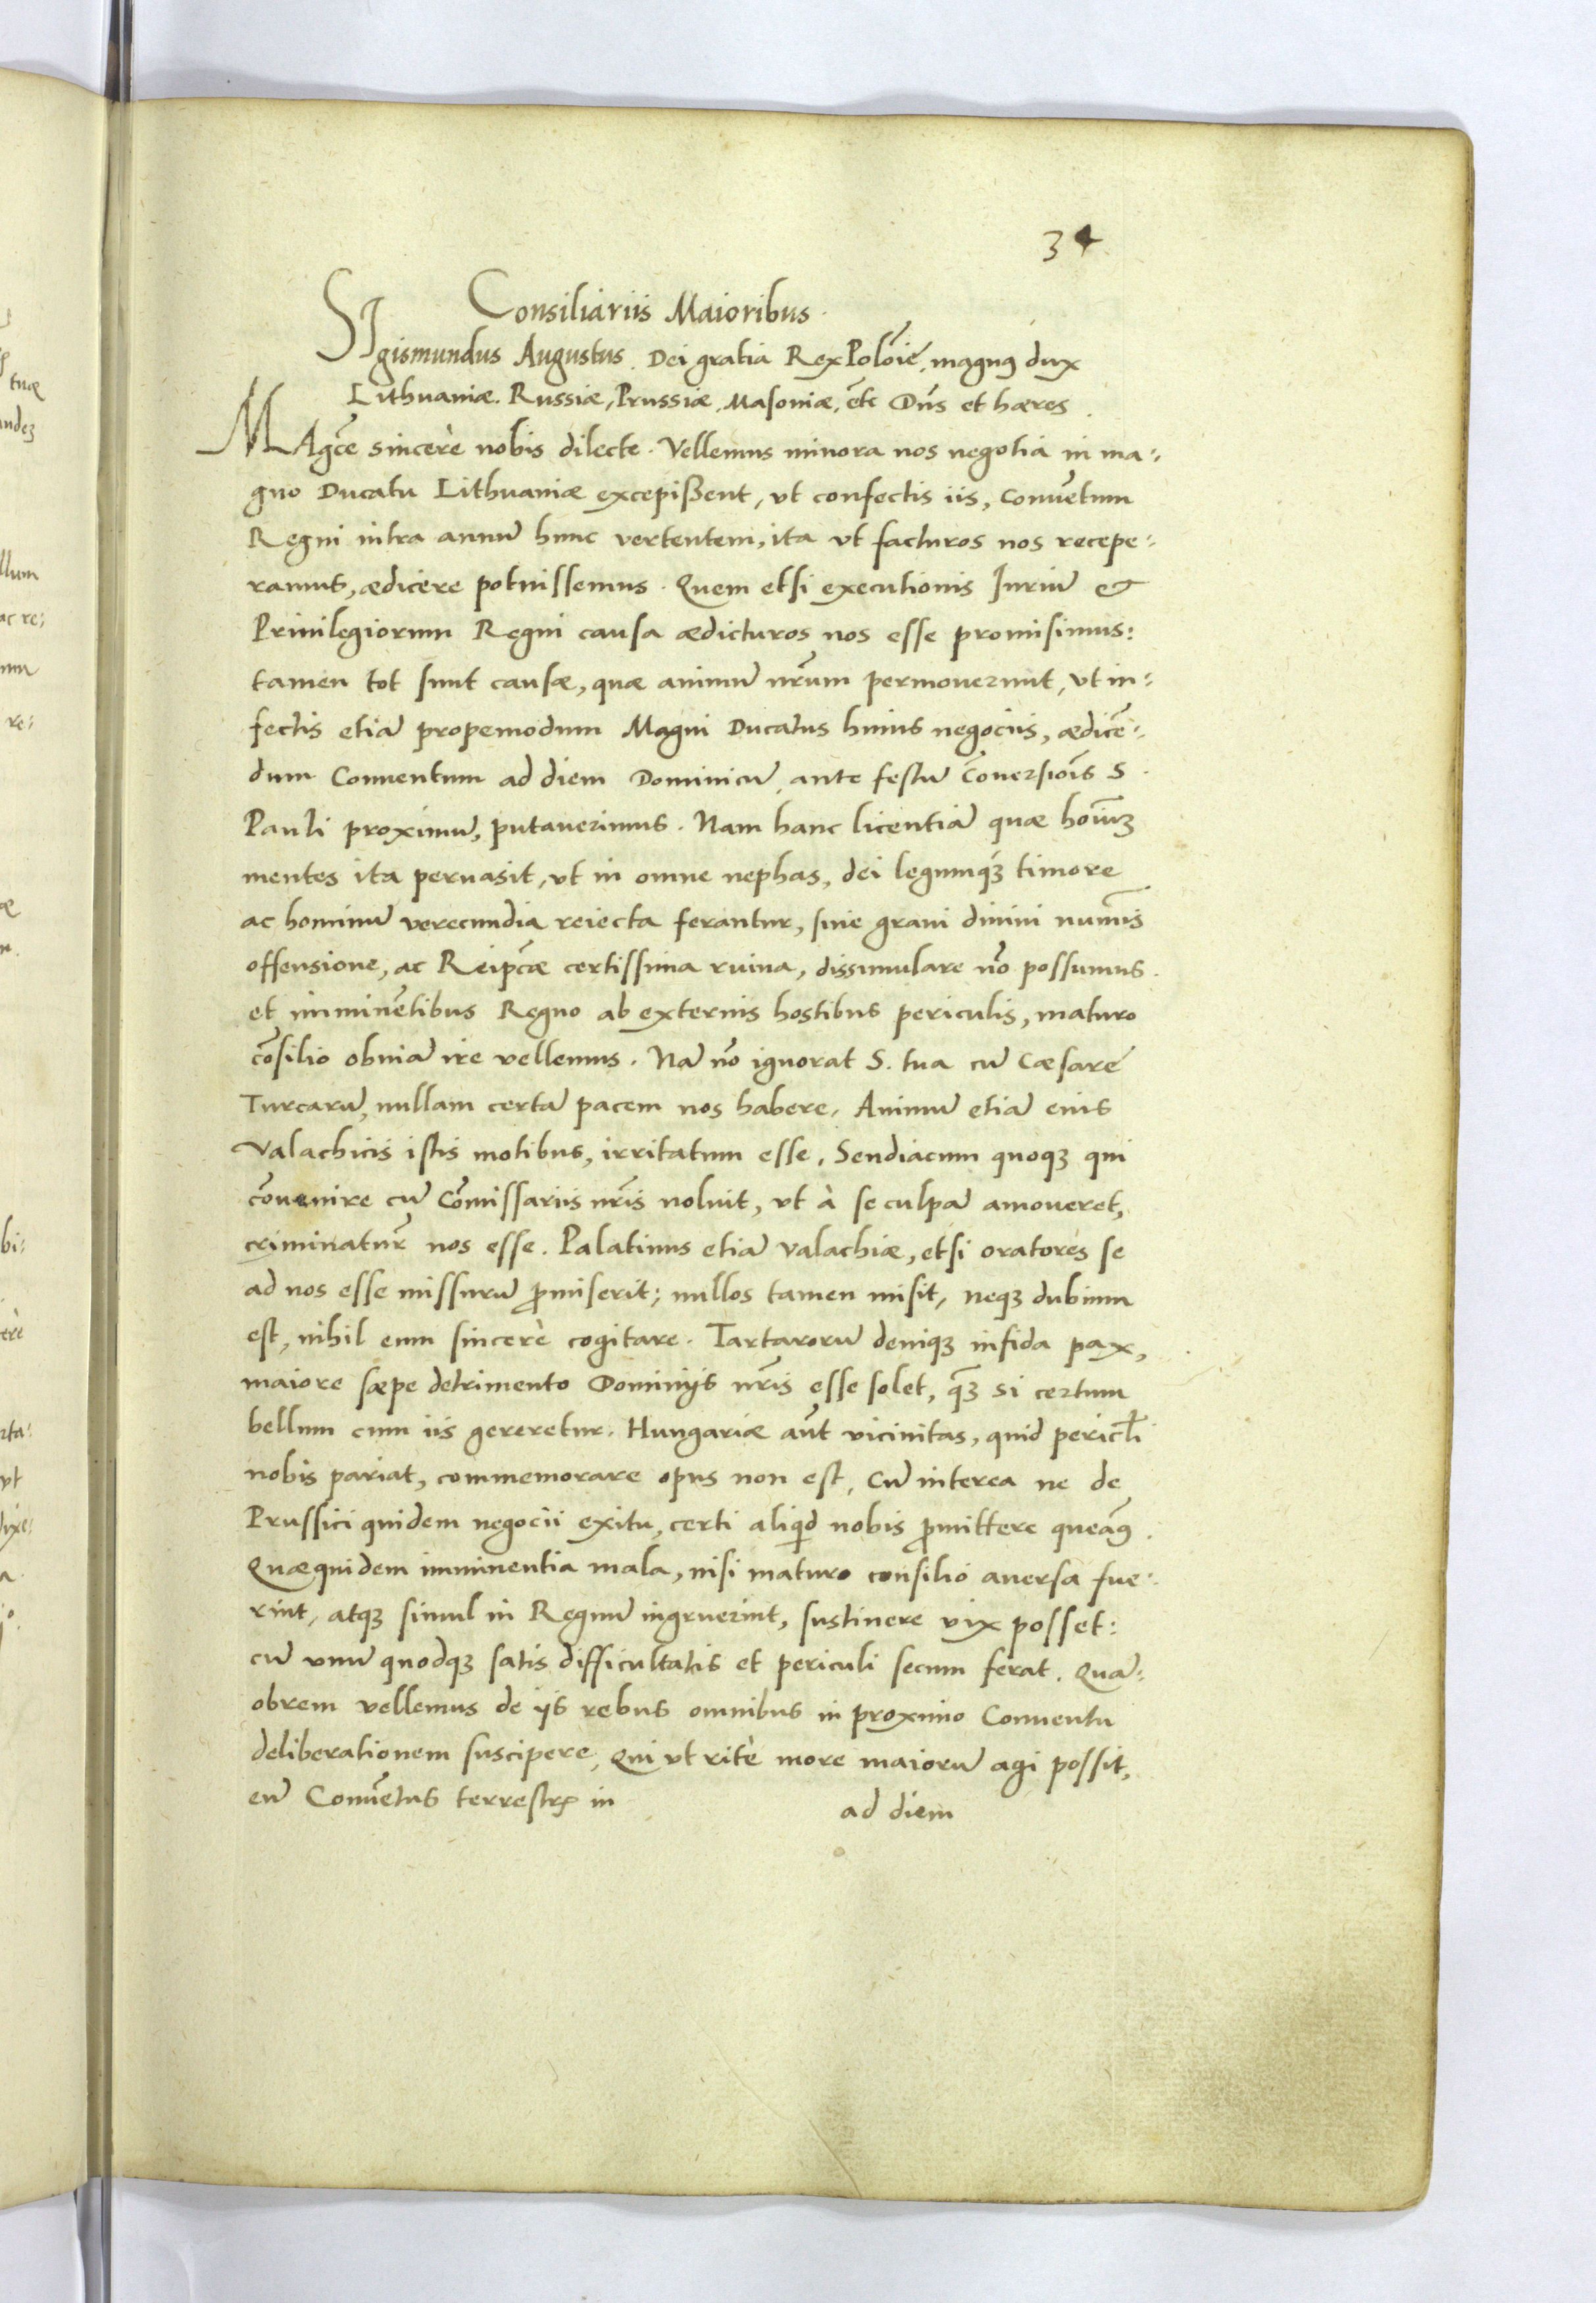 34
Consiliariis Maioribus.
SIgismundus Augustus. Dei gratia Rex Polōie, magnus dux
Lithuaniæ. Russiæ, Prussiæ, Masoniæ, etc Dn̄s et hæres.
MAgc̄e sincerè nobis dilecte. Vellemus minora nos negotia in ma-
gno Ducatu Lithuaniæ excepißent, vt confectis iis, Conuētum
Regni intra annū hunc vertentem, ita vt facturos nos recepe-
ramus, ædicere potuissemus. Quem etsi executionis Iuriū &
Priuilegiorum Regni causa ædicturos nos esse promisimus:
tamen tot sunt causæ, quæ animū nr̄um permouerunt, vt in-
fectis etiā propemodum Magni Ducatus huius negociis, ædicē-
dum Conuentum ad diem Dominicū, ante festū Cōuersiōis S.
Pauli proximū, putauerimus. Nam hanc licentiā quæ hoīuꝫ
mentes ita peruasit, vt in omne nephas, dei legumqꝫ timore
ac hominū verecundia reiecta ferantur, sine graui diuini numīs
offensione, ac Reipc̄æ certissima ruina, dissimulare nō possumus.
et imminētibus Regno ab externis hostibus periculis, maturo
cōsilio obuiā ire vellemus. Nā nō ignorat S. tua cū Cæsare
Turcarū, nullam certā pacem nos habere. Animū etiā eius
Valachicis istis motibus, irritatum esse. Sendiacum quoqꝫ qui
cōuenire cū Cōmissariis nr̄is noluit, vt à se culpā amoueret,
criminatur nos esse. Palatinus etiā Valachiæ, etsi oratores se
ad nos esse missurū p̄miserit; nullos tamen misit, neqꝫ dubium
est, nihil eum sincerè cogitare. Tartarorū deniqꝫ infida pax,
maiore sæpe detrimento Dominijs nr̄is esse solet, qꝫ si certum
bellum cum iis gereretur. Hungariæ aūt vicinitas, quid pericl̄i
nobis pariat, commemorare opus non est, Cū interea ne de
Prussici quidem negocii exitu, certi aliqid nobis p̄mittere queāꝰ.
Quæquidem imminentia mala, nisi maturo consilio auersa fue-
rint, atqꝫ simul in Regnū ingruerint, sustinere vix posset:
cū vnū quodqꝫ satis difficultatis et periculi secum ferat. Quā-
obrem vellemus de ijs rebus omnibus in proximo Conuentu
deliberationem suscipere, Qui vt ritè more maiorū agi possit,
eū Conuētus terrestrꝭ in ad diem